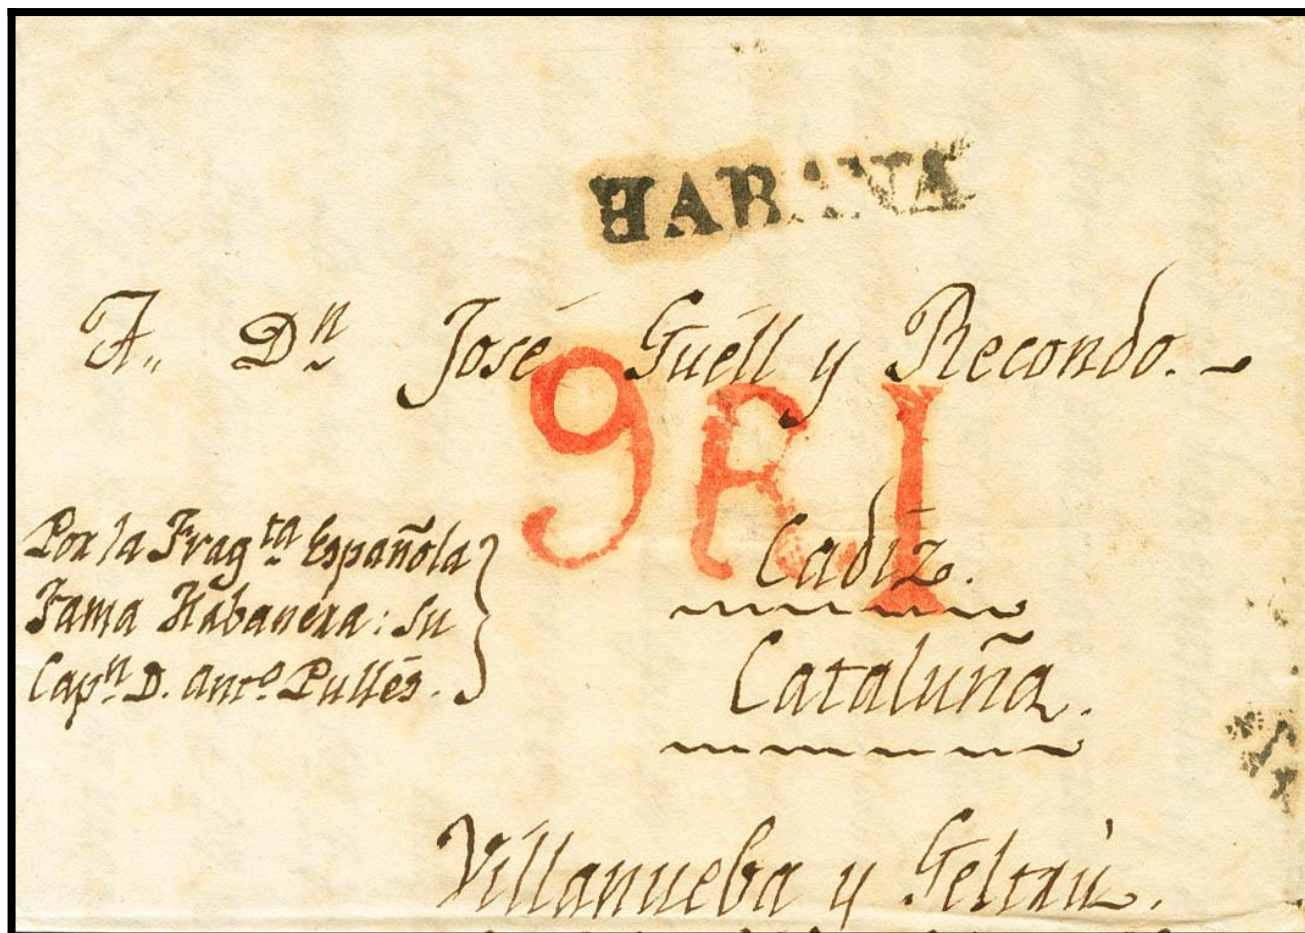 HABANA
A,, Dⁿ José Güell y Recondo.
9 R. I
Por la Fragᵗᵃ Española
Fama Habanera: su
Capⁿ D. Antº Pullés.
Cadiz.
Cataluña.
Villanueba y Geltrú.